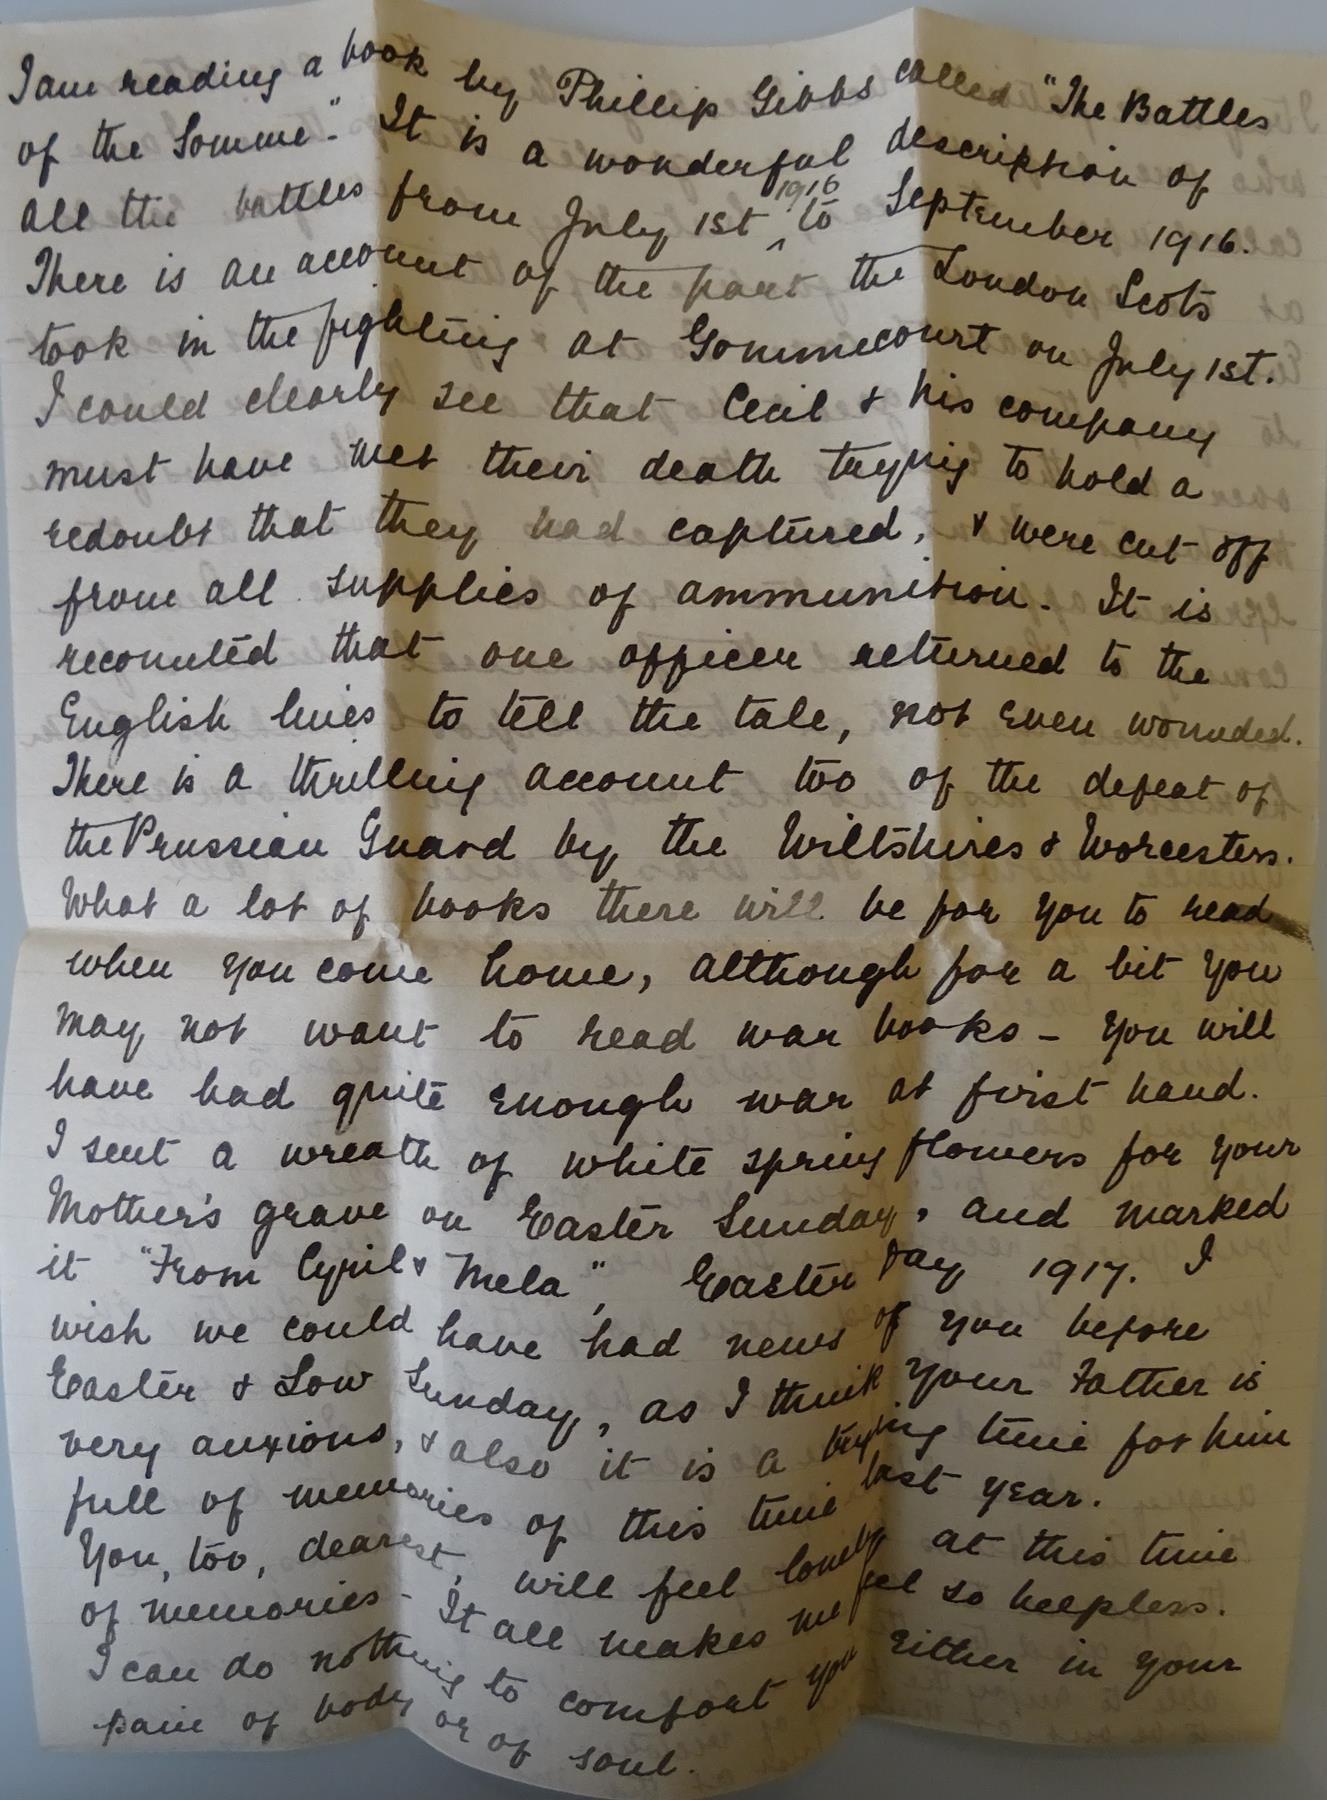 I am reading a book by Phillip Gibbs called "The Battles
of the Somme". It is a wonderful description of
all the battles from July 1st ^1916 to September 1916.
There is an account of the part the London Scots
took in the fighting at Gommecourt on July 1st.
I could clearly see that Cecil & his company
must have met their death trying to hold a
redoubt that they had captured, & were cut off
from all supplies of ammunition. It is
recounted that one officer returned to the
English lines to tell the tale, not even wounded.
There is a thrilling account too of the defeat of
the Prussian Guard by the Wiltshires & Worcesters.
What a lot of books there will be for you to read
when you come home, although for a bit you
may not want to read war books - you will
have had quite enough war at first hand.
I sent a wreath of white spring flowers for your
Mother's grave on Easter Sunday, and marked
it "From Cyril & Mela", Easter Day 1917. I
wish we could have had news of you before
Easter & Low Sunday, as I think your Father is
very anxious, & also it is a trying time for him
full of memories of this time last year.
You, too, dearest, will feel lonely at this time
of memories - It all makes me feel so helpless.
I can do nothing to comfort you either in your
pain of body or of soul.